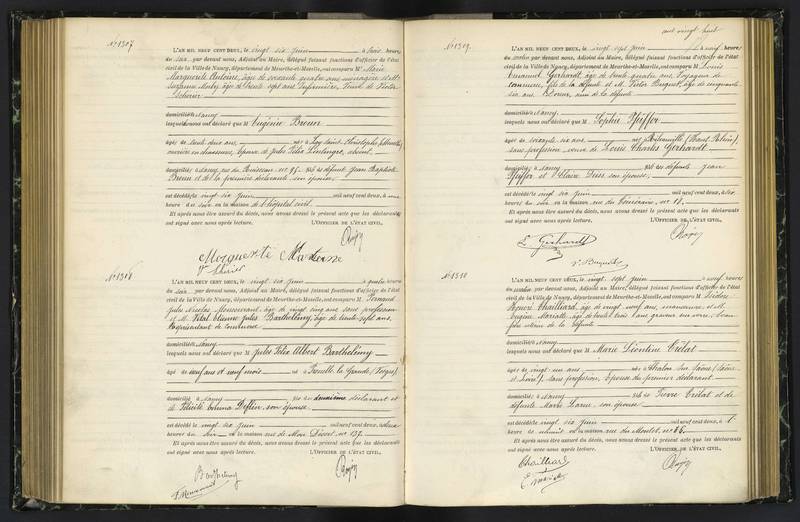 N° 1307
L'AN MIL NEUF CENT DEUX, le vingt six juin à trois heures
du soir par devant nous, Adjoint au Maire, délégué faisant fonctions d'officier de l'état
civil de la Ville de Nancy, département de Meurthe-et-Moselle, ont comparu M Marie
Marguerite Antoine, âgée de soixante quatre ans ménagère et M
Suzanne âgée de trente sept ans Infirmière, Veuve de Victor
domiciliés à Nancy
lesquels nous ont déclaré que M Eugénie Breun
âgée de trente deux ans, née à Lay Saint Christophe
ouvrière en chaussures, épouse de Jules Félix absent
domiciliée à Nancy, rue du Ruisseau n° 95 fille de défunt Jean Baptiste
Breun et de la première déclarante son épouse
est décédée vingt six juin mil neuf cent deux, à une
heure du soir en la maison de l'hôpital civil.
Et après nous être assuré du décès, nous avons dressé le présent acte que les déclarants
ont signé avec nous après lecture. L'OFFICIER DE L'ÉTAT CIVIL,
N° 1308
L'AN MIL NEUF CENT DEUX, le vingt six juin à quatre heures
du soir par devant nous, Adjoint au Maire, délégué faisant fonctions d'officier de l'état
civil de la Ville de Nancy, département de Meurthe-et-Moselle, ont comparu M Fernand
Jules Nicolas âgé de vingt cinq ans sans profession
et M Vital Etienne Jules Barthélémy, âgé de trente sept ans,
Représentant de commerce
domiciliés à Nancy
lesquels nous ont déclaré que M Jules Félix Albert Barthélémy
âgé de neuf ans et neuf mois né à la Grande (Vosges)
domicilié à Nancy fils du deuxième déclarant et
de Félicité Emma son épouse
est décédé vingt six juin mil neuf cent deux, à deux
heures du soir en la maison rue de Mon Désert, n° 137
Et après nous être assuré du décès, nous avons dressé le présent acte que les déclarants
ont signé avec nous après lecture. L'OFFICIER DE L'ÉTAT CIVIL,
Barthélémy
cent vingt huit
N° 1309
L'AN MIL NEUF CENT DEUX, le vingt sept juin à neuf heures
du matin par devant nous, Adjoint au Maire, délégué faisant fonctions d'officier de l'état
civil de la Ville de Nancy, département de Meurthe-et-Moselle, ont comparu M Louis
Emmanuel Gerhardt, âgé de trente quatre ans, Voyageur de
commerce, fils de la défunte et M Victor âgé de cinquante
six ans, ami de la défunte
domiciliés à Nancy
lesquels nous ont déclaré que M Sophie Pfiffer
âgée de soixante six ans née (Haut Rhin)
sans profession, veuve de Louis Charles Gerhardt
domiciliée à Nancy fille des défunts Jean
Pfiffer et son épouse
est décédée vingt six juin mil neuf cent deux, à six
heures du soir en la maison, rue n° 18
Et après nous être assuré du décès, nous avons dressé le présent acte que les déclarants
ont signé avec nous après lecture. L'OFFICIER DE L'ÉTAT CIVIL,
L. Gerhardt
N° 1310
L'AN MIL NEUF CENT DEUX, le vingt sept juin à neuf heures
du matin par devant nous, Adjoint au Maire, délégué faisant fonctions d'officier de l'état
civil de la Ville de Nancy, département de Meurthe-et-Moselle, ont comparu M
Honoré Chailliard, âgé de vingt neuf ans, et M
Eugène âgé de trente trois ans graveur sur verre, beau
frère de la défunte
domiciliés à Nancy
lesquels nous ont déclaré que M Marie Léontine Trélat
âgée de vingt un ans née à Chalon sur Saône (Saône
et Loire), sans profession, épouse du premier déclarant
domiciliée à Nancy fille de Pierre Trélat et de
défunte Marie son épouse
est décédée vingt six juin mil neuf cent deux, à
heure en la maison, rue du Montet, n° 86
Et après nous être assuré du décès, nous avons dressé le présent acte que les déclarants
ont signé avec nous après lecture. L'OFFICIER DE L'ÉTAT CIVIL,
Chailliard